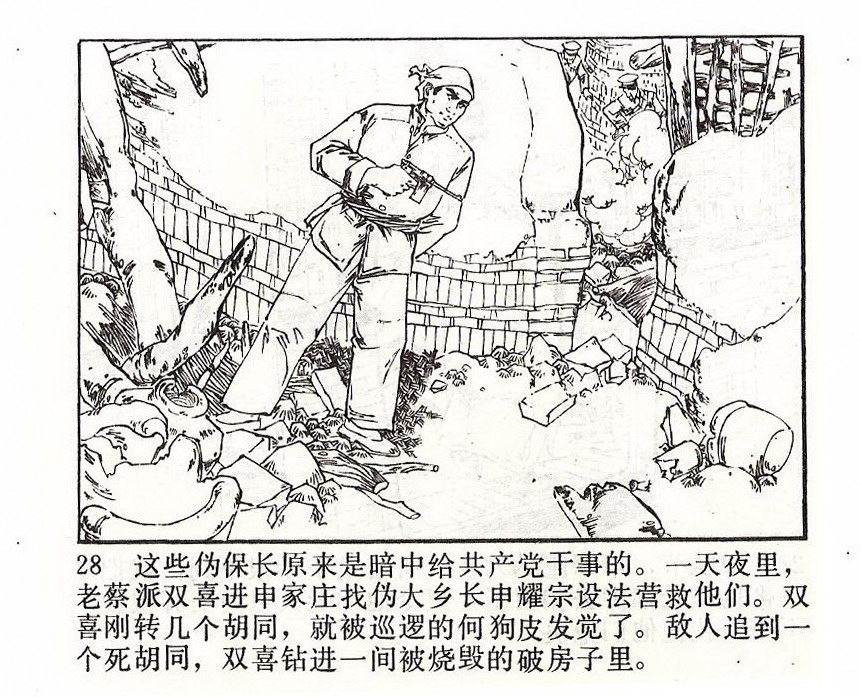 28　这些伪保长原来是暗中给共产党干事的。一天夜里，
老蔡派双喜进申家庄找伪大乡长申耀宗设法营救他们。双
喜刚转几个胡同，就被巡逻的何狗皮发觉了。敌人追到一
个死胡同，双喜钻进一间被烧毁的破房子里。